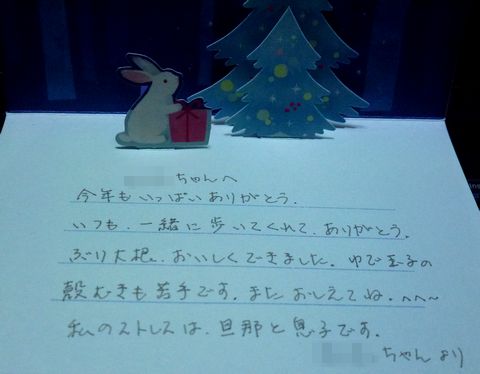 ちゃんへ
今年もいっぱいありがとう。
いつも、一緒に歩いてくれて、ありがとう。
ぶり大根、おいしくできました。ゆで玉子の
殻むきも苦手です。またおしえてね。へへ〜
私のストレスは、旦那と息子です。
ちゃんより